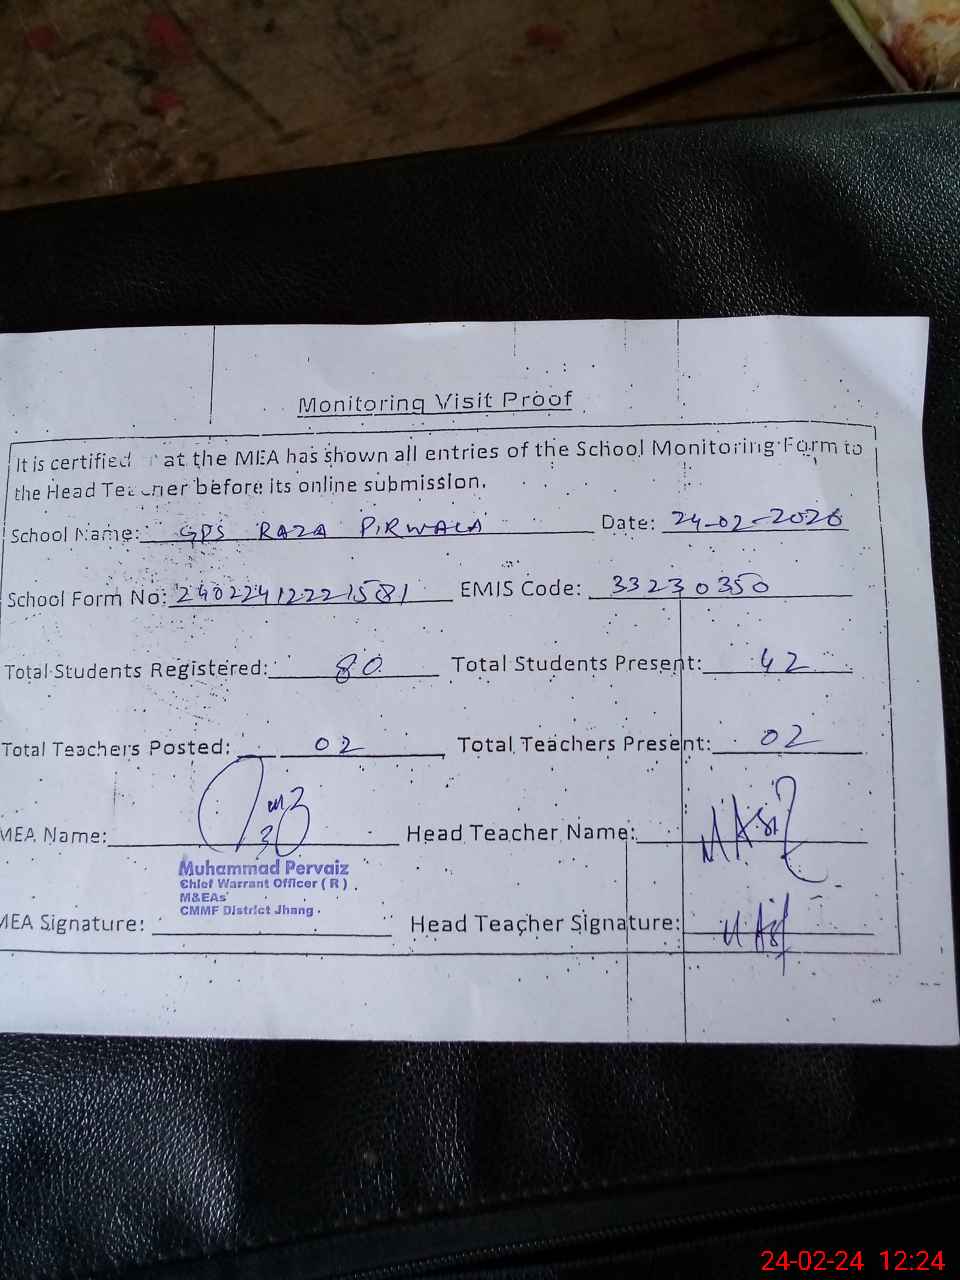 Monitoring Visit Proof
It is certified at the MEA has shown all entries of the School Monitoring Form to
the Head Teacher before its online submission.
School Name: GPS RAZA PIRWALA Date: 24-02-2026
School Form No: 24022412221581 EMIS Code: 33230350
Total Students Registered: 80 Total Students Present: 42
Total Teachers Posted: 02 Total Teachers Present: 02
MEA Name: Head Teacher Name: M Asif
Muhammad Pervaiz
Chief Warrant Officer ( R )
M&EAs
CMMF District Jhang
MEA Signature: Head Teacher Signature: M Asif
24-02-24 12:24